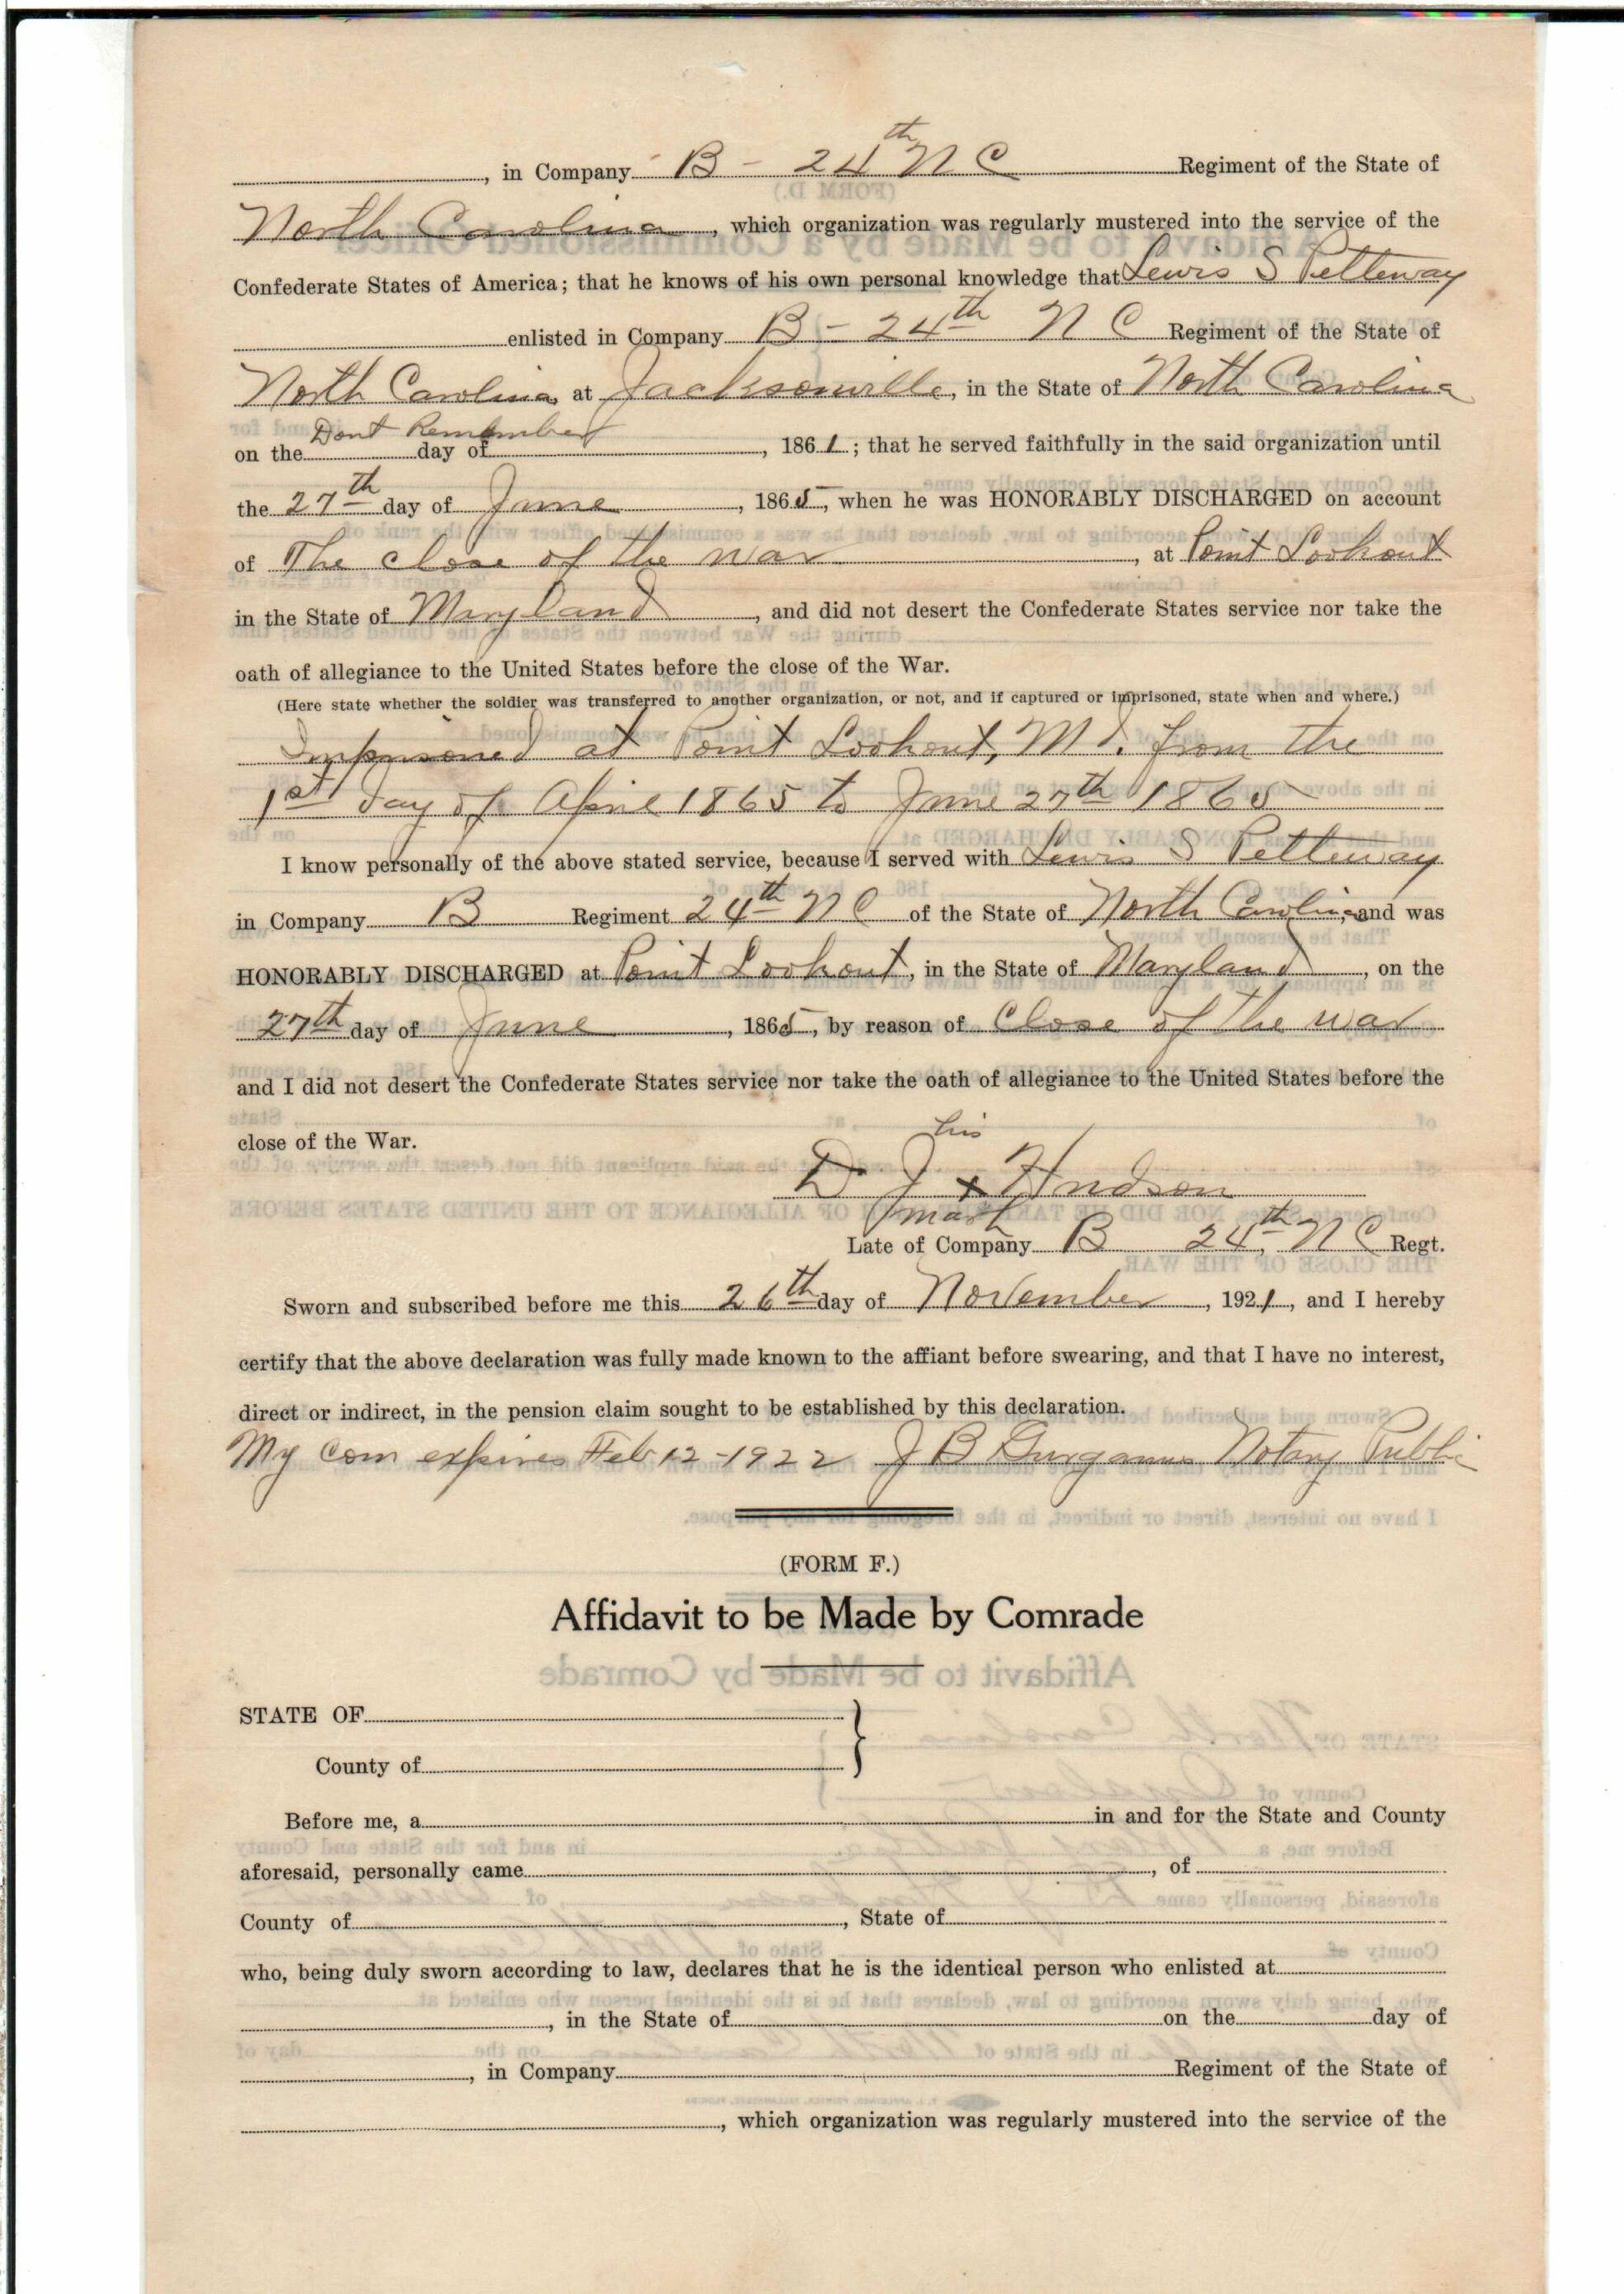 , in Company B - 24th N C Regiment of the State of
North Carolina, which organization was regularly mustered into the service of the
Confederate States of America; that he knows of his own personal knowledge that Lewis S Petteway
enlisted in Company B - 24th N C Regiment of the State of
North Carolina at Jacksonville, in the State of North Carolina
on the Dont Remember day of , 1861; that he served faithfully in the said organization until
the 27th day of June, 1865, when he was HONORABLY DISCHARGED on account
of The close of the war, at Point Lookout
in the State of Maryland, and did not desert the Confederate States service nor take the
oath of allegiance to the United States before the close of the War.
(Here state whether the soldier was transferred to another organization, or not, and if captured or imprisoned, state when and where.)
Imprisoned at Point Lookout, Md. from the
1st day of April 1865 to June 27th 1865
I know personally of the above stated service, because I served with Lewis S Petteway
in Company B Regiment 24th N C of the State of North Carolina, and was
HONORABLY DISCHARGED at Point Lookout, in the State of Maryland, on the
27th day of June, 1865, by reason of Close of the war
and I did not desert the Confederate States service nor take the oath of allegiance to the United States before the
close of the War.
his
D J x Hudson
mark
Late of Company B 24th, N C Regt.
Sworn and subscribed before me this 26th day of November, 1921, and I hereby
certify that the above declaration was fully made known to the affiant before swearing, and that I have no interest,
direct or indirect, in the pension claim sought to be established by this declaration.
My Com expires Feb 12-1922 J B Gurganus Notary Public
(FORM F.)
Affidavit to be Made by Comrade
STATE OF
County of
Before me, a in and for the State and County
aforesaid, personally came , of
County of , State of
who, being duly sworn according to law, declares that he is the identical person who enlisted at
, in the State of on the day of
, in Company Regiment of the State of
, which organization was regularly mustered into the service of the